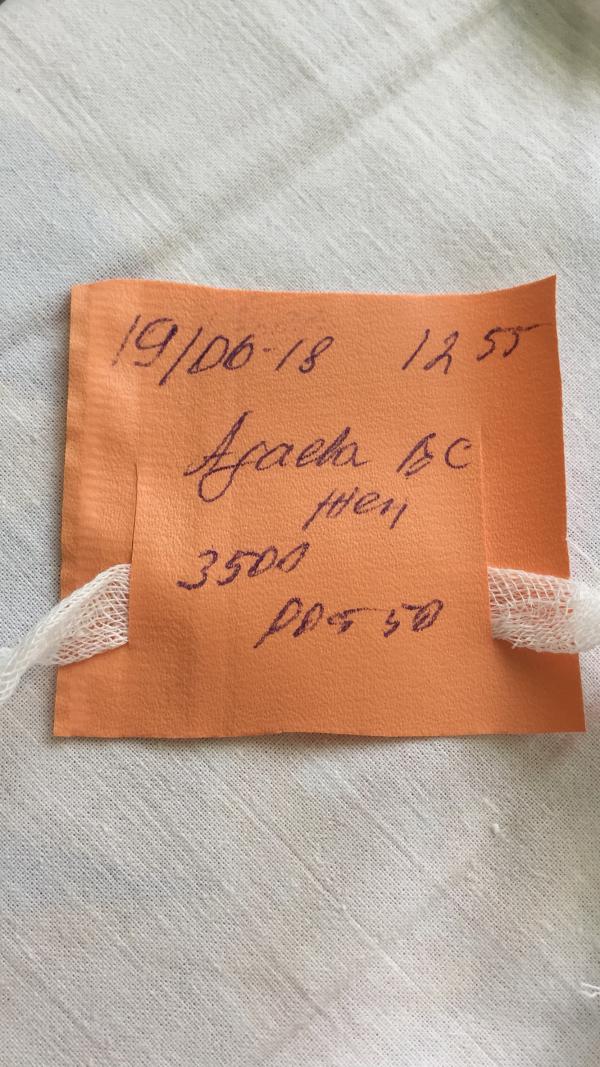 19/06-18 12 55
Агаева В С
жен
3500
50